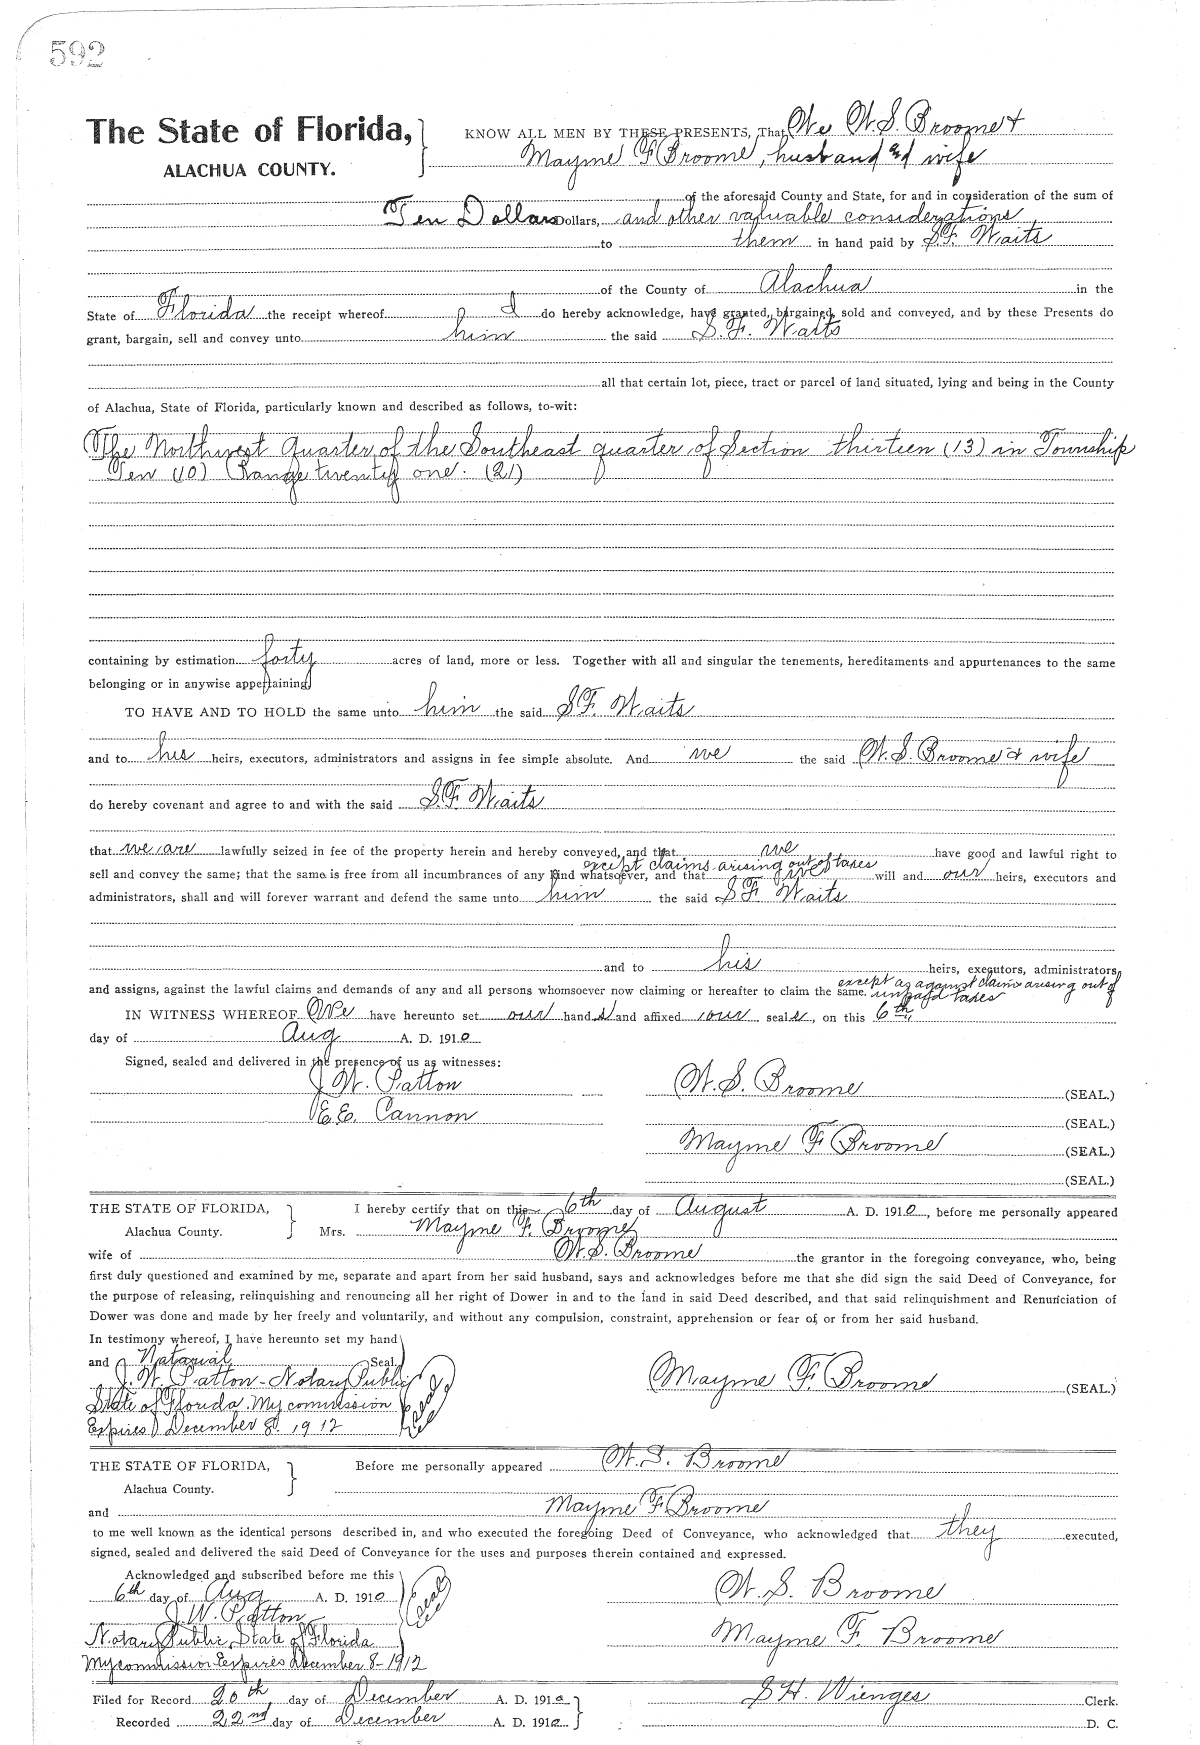 592
The State of Florida,
ALACHUA COUNTY.
KNOW ALL MEN BY THESE PRESENTS, That We W. S. Broome &
Mayme F Broome, husband and wife
of the aforesaid County and State, for and in consideration of the sum of
Ten Dollars Dollars, and other valuable considerations
to them in hand paid by S. F. Waits
of the County of Alachua in the
State of Florida the receipt whereof I do hereby acknowledge, have granted, bargained, sold and conveyed, and by these Presents do
grant, bargain, sell and convey unto him the said S. F. Waits
all that certain lot, piece, tract or parcel of land situated, lying and being in the County
of Alachua, State of Florida, particularly known and described as follows, to-wit:
The Northwest Quarter of the Southeast quarter of Section thirteen (13) in Township
Ten (10) Range twenty one. (21)
containing by estimation forty acres of land, more or less. Together with all and singular the tenements, hereditaments and appurtenances to the same
belonging or in anywise appertaining
TO HAVE AND TO HOLD the same unto him the said S. F. Waits
and to his heirs, executors, administrators and assigns in fee simple absolute. And we the said W. S. Broome & wife
do hereby covenant and agree to and with the said S. F. Waits
that we are lawfully seized in fee of the property herein and hereby conveyed, and that we have good and lawful right to
except claims arising out of taxes
sell and convey the same; that the same is free from all incumbrances of any kind whatsoever, and that we will and our heirs, executors and
administrators, shall and will forever warrant and defend the same unto him the said S. F. Waits
and to his heirs, executors, administrators,
and assigns, against the lawful claims and demands of any and all persons whomsoever now claiming or hereafter to claim the same. except as against claims arising out of
unpaid taxes
IN WITNESS WHEREOF We have hereunto set our hands and affixed our seals, on this 6th
day of Aug A. D. 1910
Signed, sealed and delivered in the presence of us as witnesses:
J. W. Patton
E. E. Cannon
W. S. Broome (SEAL.)
(SEAL.)
Mayme F Broome (SEAL.)
(SEAL.)
THE STATE OF FLORIDA,
Alachua County.
I hereby certify that on this 6th day of August A. D. 1910, before me personally appeared
Mrs. Mayme F. Broome
wife of W. S. Broome the grantor in the foregoing conveyance, who, being
first duly questioned and examined by me, separate and apart from her said husband, says and acknowledges before me that she did sign the said Deed of Conveyance, for
the purpose of releasing, relinquishing and renouncing all her right of Dower in and to the land in said Deed described, and that said relinquishment and Renunciation of
Dower was done and made by her freely and voluntarily, and without any compulsion, constraint, apprehension or fear of, or from her said husband.
In testimony whereof, I have hereunto set my hand
and Notarial Seal.
J. W. Patton - Notary Public
State of Florida. My commission
Expires December 8. 1912
(Seal)
Mayme F. Broome (SEAL.)
THE STATE OF FLORIDA,
Alachua County.
Before me personally appeared W. S. Broome
and Mayme F Broome
to me well known as the identical persons described in, and who executed the foregoing Deed of Conveyance, who acknowledged that they executed,
signed, sealed and delivered the said Deed of Conveyance for the uses and purposes therein contained and expressed.
Acknowledged and subscribed before me this
6th day of Aug A. D. 1910
J. W. Patton
Notary Public, State of Florida
My commission Expires December 8 - 1912
(Seal)
W. S. Broome
Mayme F. Broome
Filed for Record 20th day of December A. D. 1910
Recorded 22nd day of December A. D. 1910
S H. Wienges Clerk.
D. C.